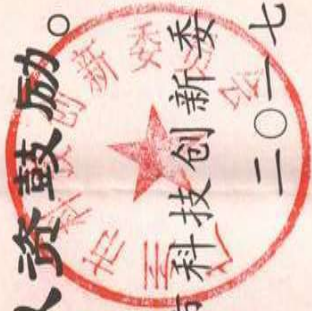 以资鼓励。
科技创新委
二〇一七